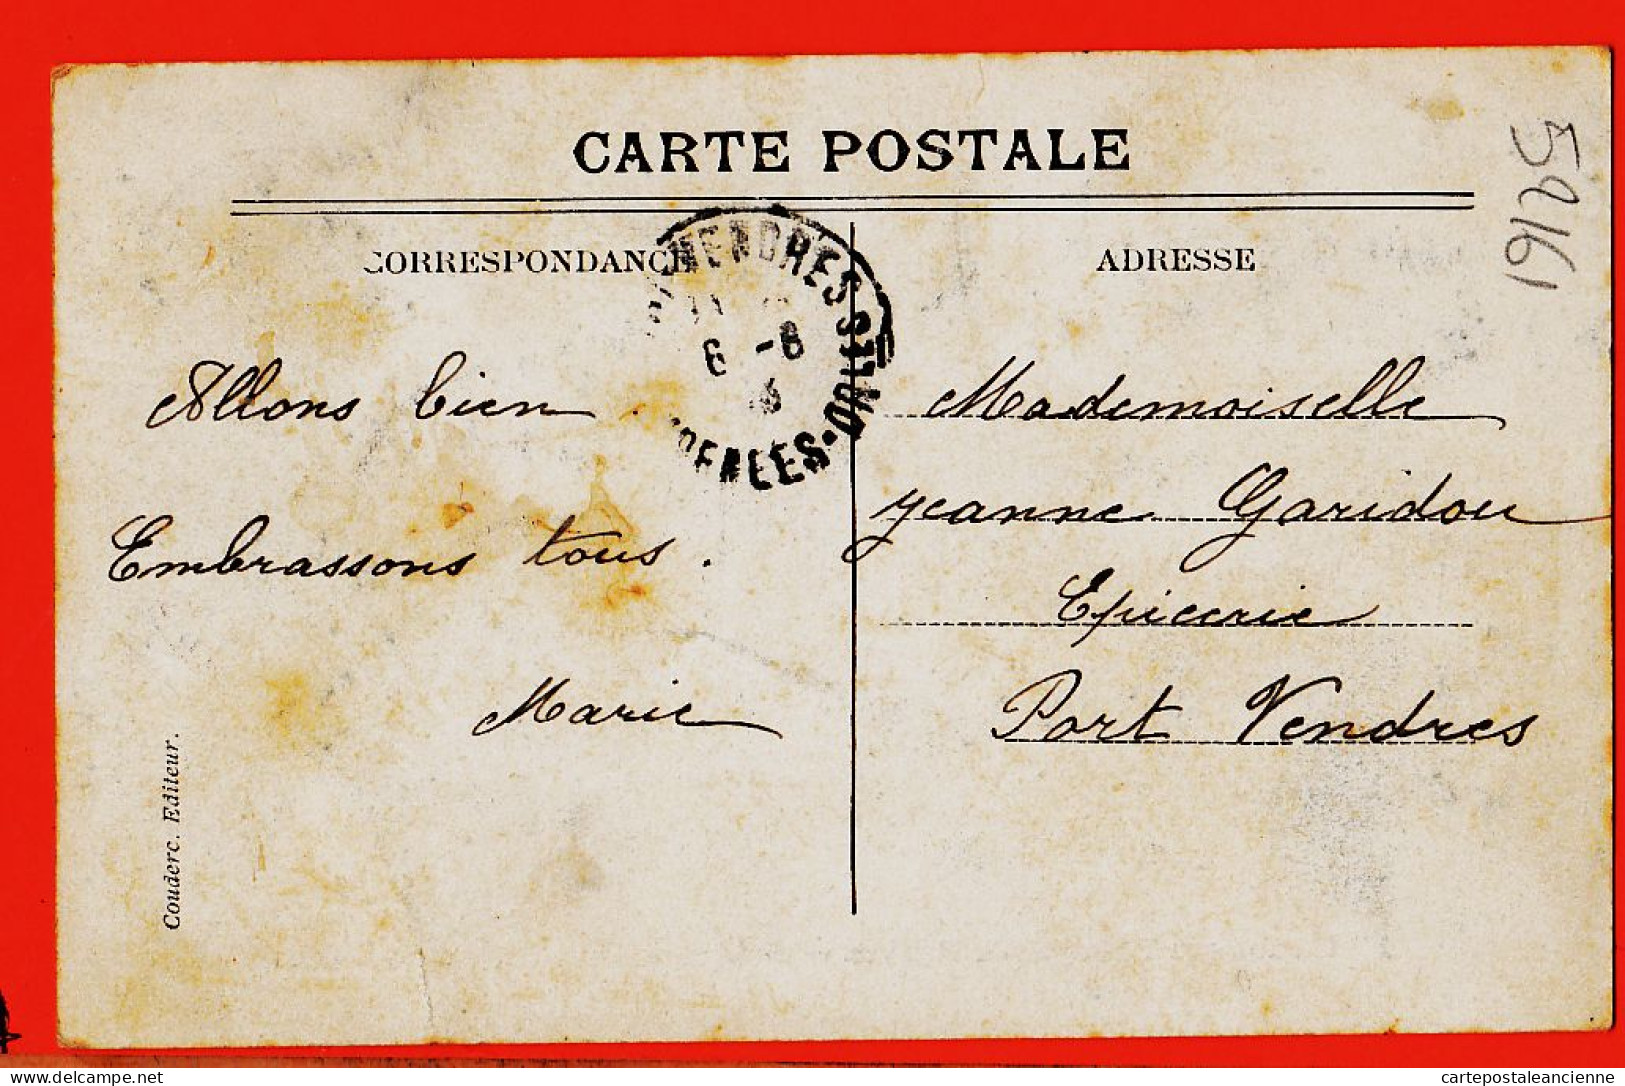 CARTE POSTALE
CORRESPONDANCE
ADRESSE
5916
VENDRES
6 -8
ORIENTALES
Allons bien.
Embrassons tous.
Marie
Mademoiselle
Jeanne Garidou
Epicerie
Port Vendres
Couderc. Editeur.
delcampe.net
cartepostaleancienne